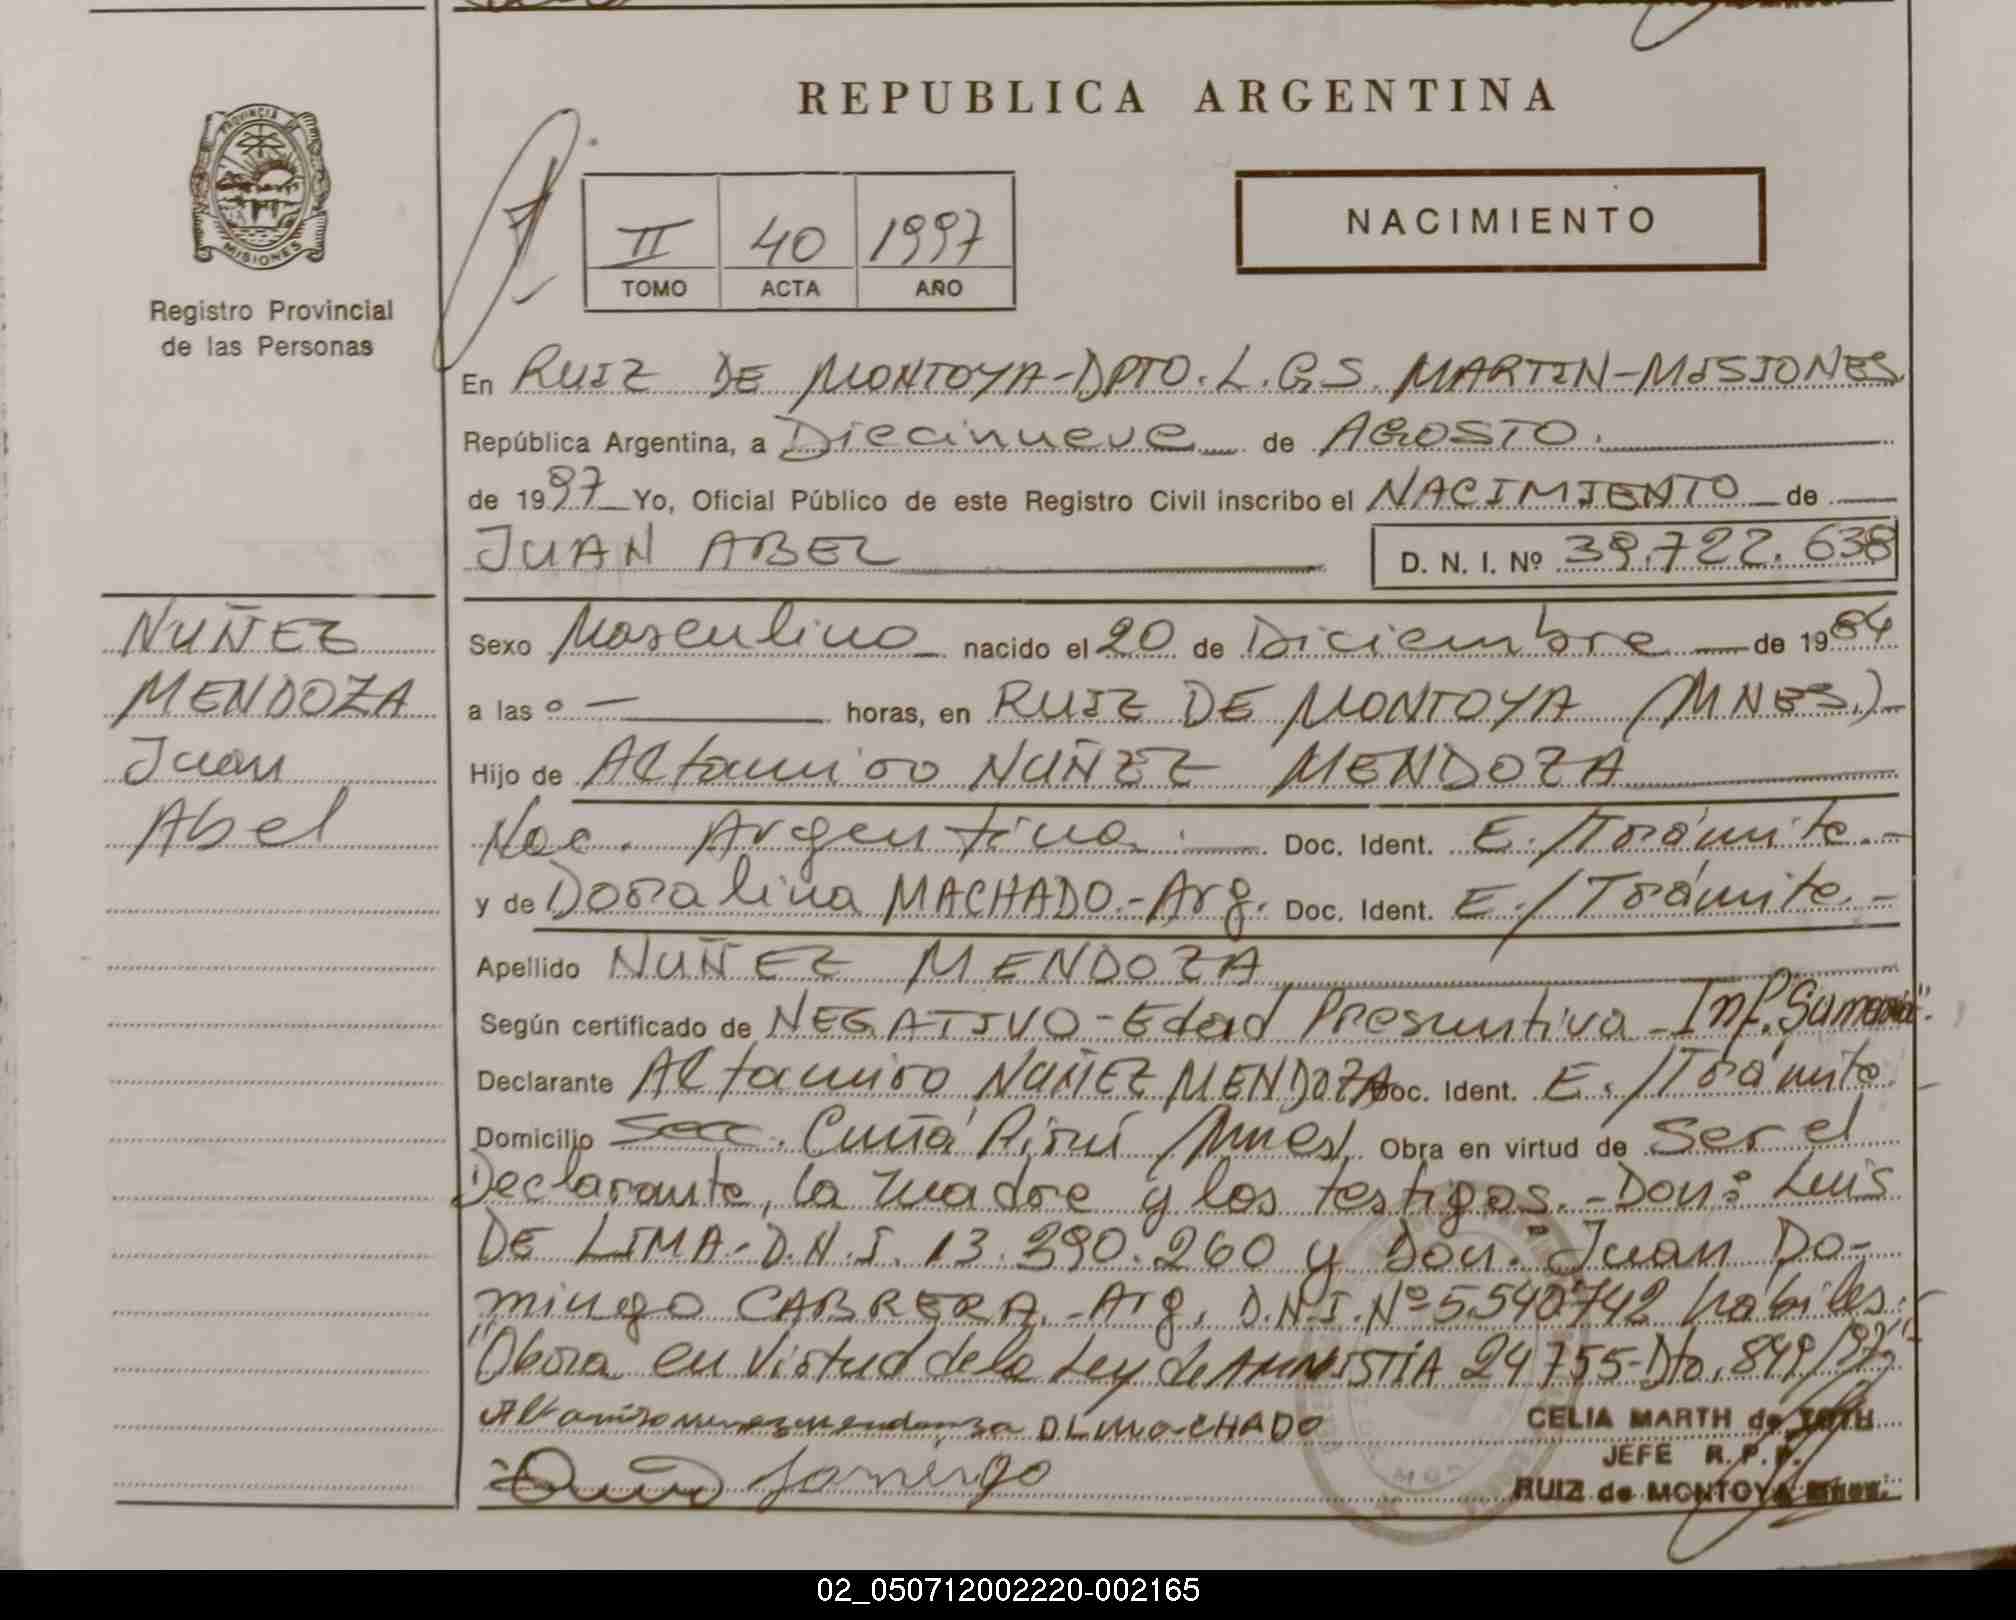 REPUBLICA ARGENTINA
PROVINCIA DE
MISIONES
Registro Provincial
de las Personas
II 40 1997
TOMO ACTA AÑO
NACIMIENTO
En RUIZ DE MONTOYA-DPTO.L.G.S. MARTIN-MISIONES
República Argentina, a Diecinueve de AGOSTO.
de 1997 Yo, Oficial Público de este Registro Civil inscribo el NACIMIENTO de
JUAN ABEL D. N. I. Nº 39.722.638
NUÑEZ
MENDOZA
Juan
Abel
Sexo Masculino nacido el 20 de Diciembre de 1984
a las 0 - horas, en RUIZ DE MONTOYA (MNES.)
Hijo de Altamiro NUÑEZ MENDOZA
Nac. Argentina. Doc. Ident. E./Trámite.-
y de Doralina MACHADO.-Arg. Doc. Ident. E./Trámite.-
Apellido NUÑEZ MENDOZA
Según certificado de NEGATIVO-Edad Presuntiva-Inf. Sumaria".
Declarante Altamiro NUÑEZ MENDOZA Doc. Ident. E./Trámite
Domicilio Sec. Cuñá Pirú /Mnes/. Obra en virtud de Ser el
Declarante, la madre y los testigos.-Don: Luis
DE LIMA-D.N.I. 13.390.260 y Don: Juan Do-
mingo CABRERA.-Arg. D.N.I.Nº5.540742 hábiles.
"Obra en Virtud de la Ley de AMNISTIA 24755-Dto. 849/97"
Altamiro nunez mendonza DLMACHADO
CELIA MARTH de TOTH
JEFE R.P.P.
RUIZ de MONTOYA Mnes.
02_050712002220-002165